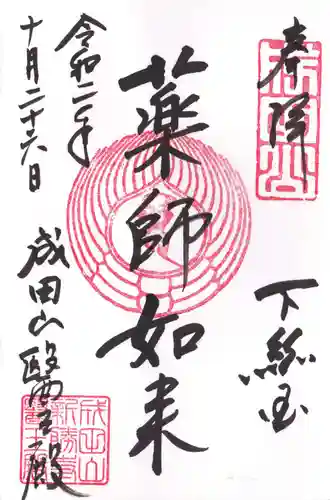 奉拝
下総国
薬師如来
令和二年
十月二十六日
成田山醫王殿
成田山
新勝寺